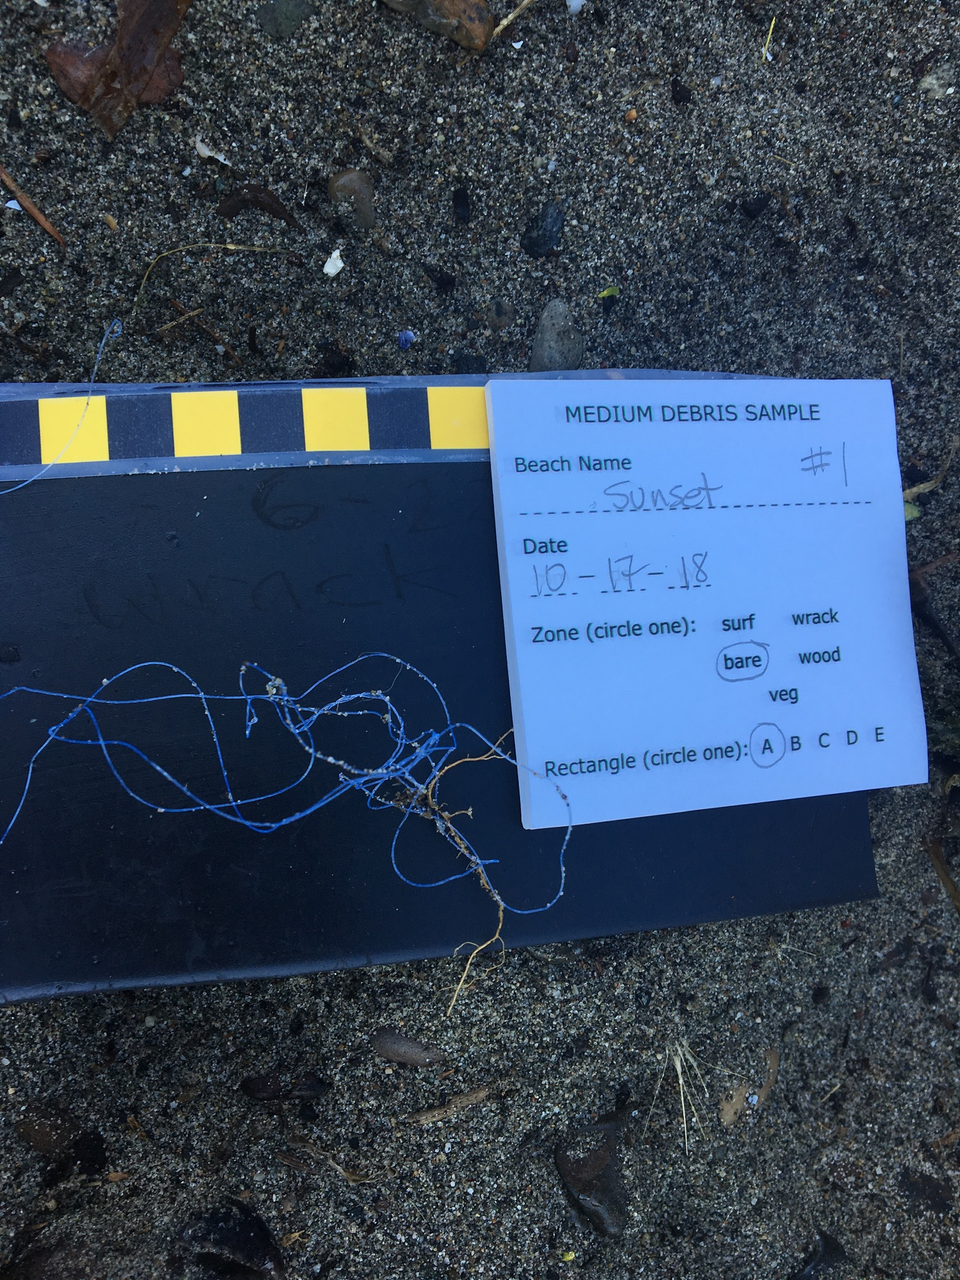 MEDIUM DEBRIS SAMPLE
Beach Name #1
Sunset
Date
10-17-18
Zone (circle one): surf wrack
bare wood
veg
Rectangle (circle one): A B C D E
6-22
wrack